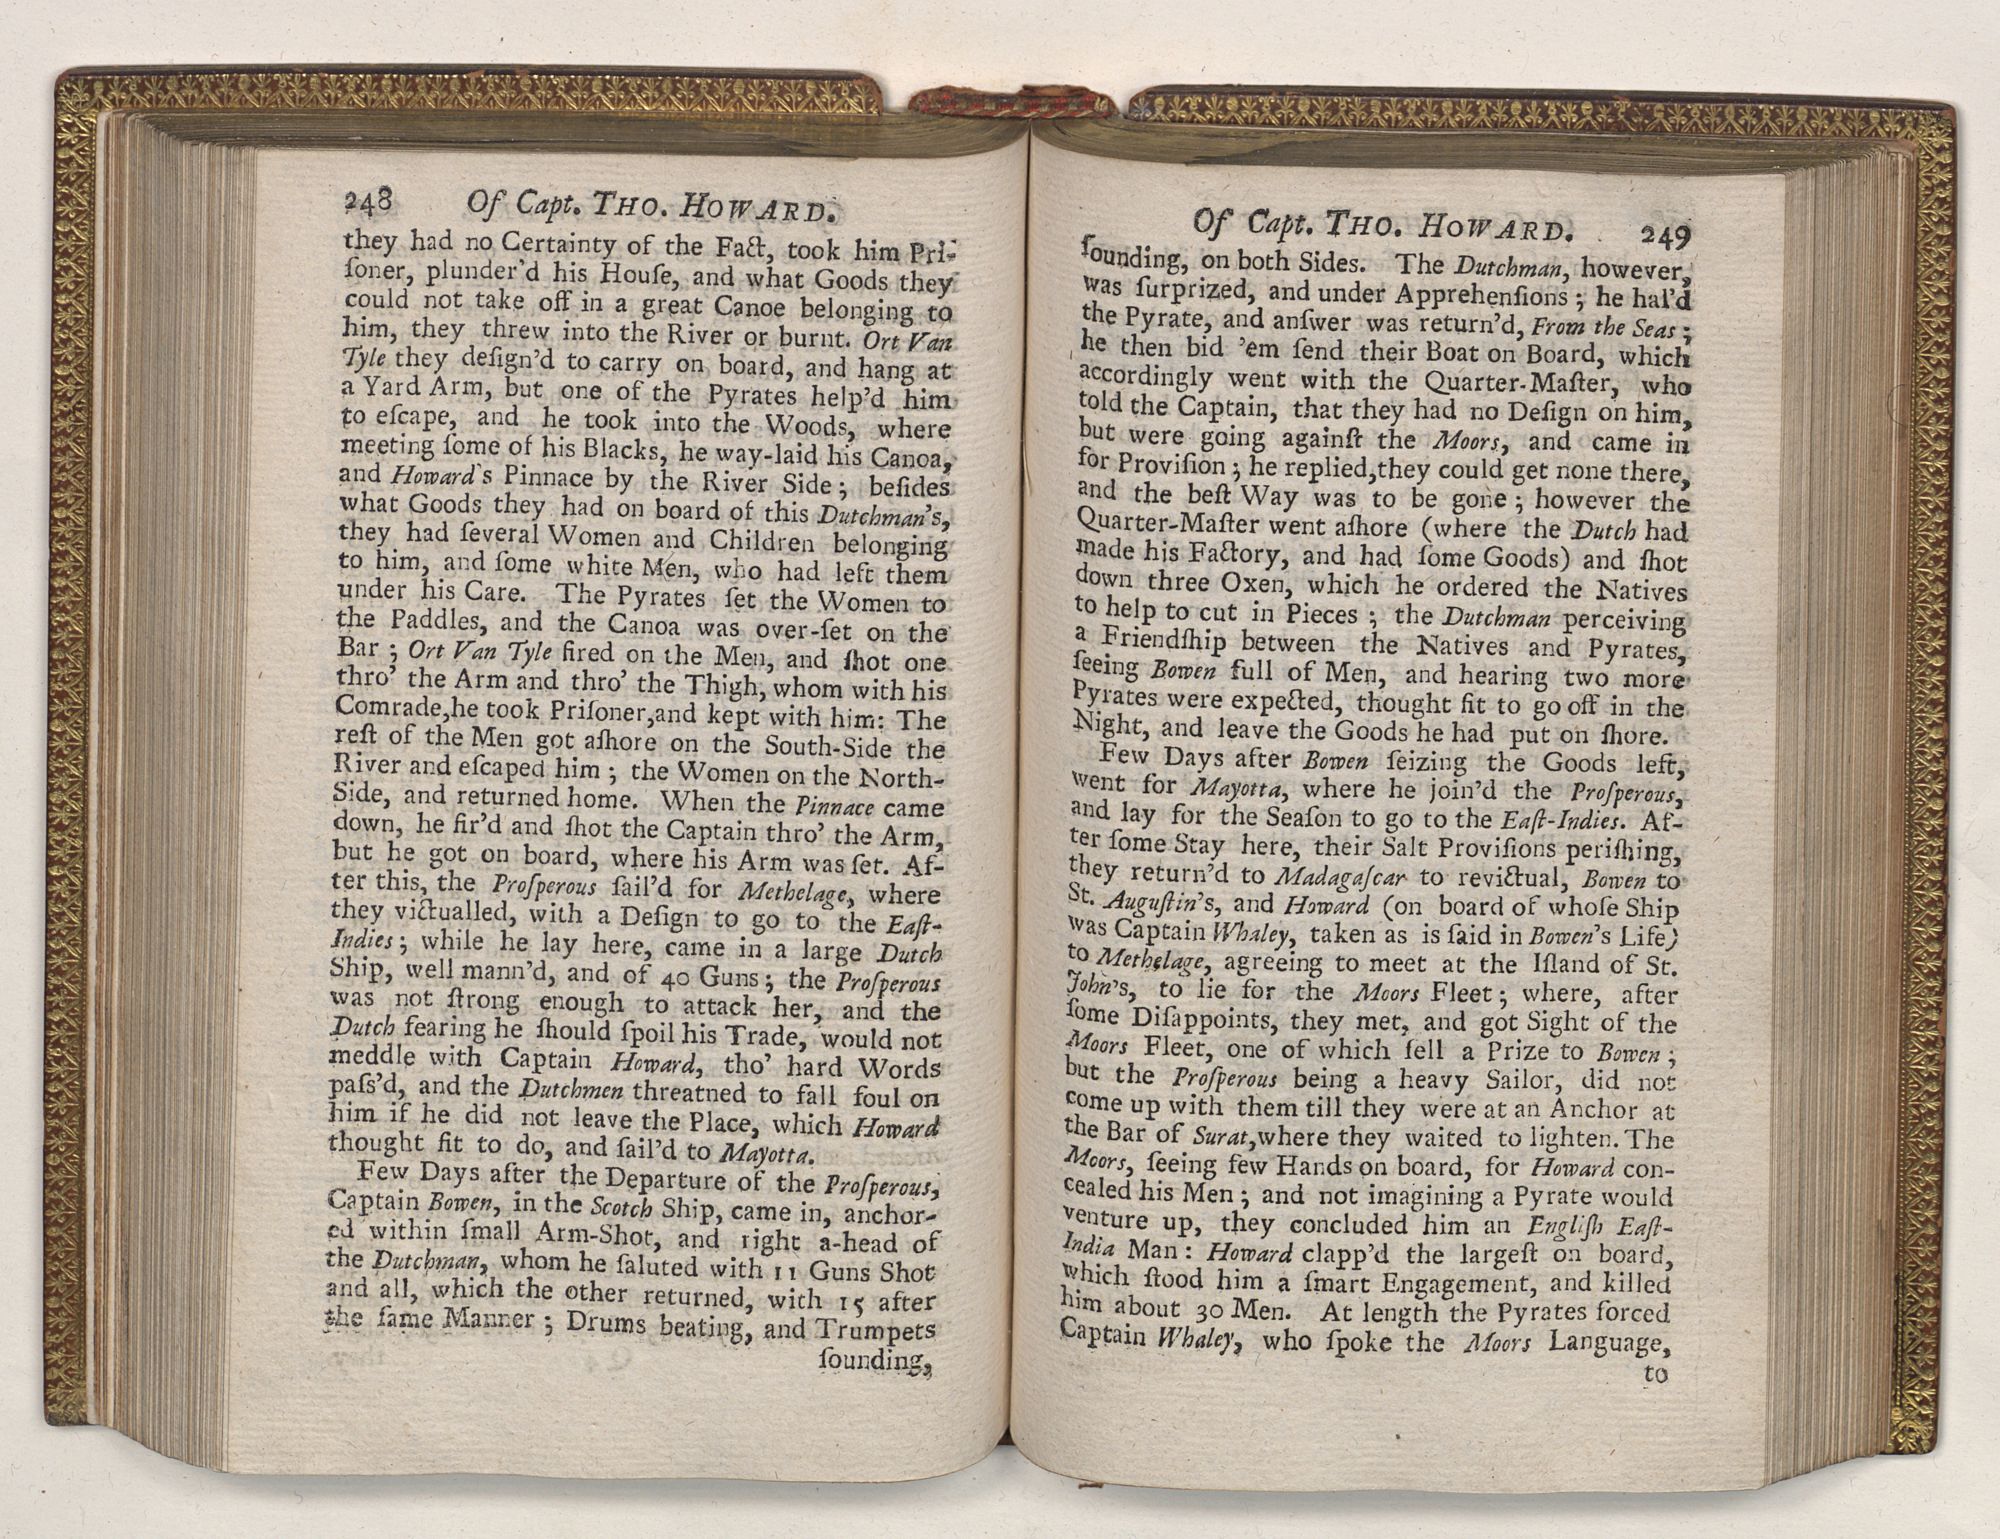 248 Of Capt. THO. HOWARD.
they had no Certainty of the Fact, took him Pri-
ſoner, plunder'd his Houſe, and what Goods they
could not take off in a great Canoe belonging to
him, they threw into the River or burnt. Ort Van
Tyle they deſign'd to carry on board, and hang at
a Yard Arm, but one of the Pyrates help'd him
to eſcape, and he took into the Woods, where
meeting ſome of his Blacks, he way-laid his Canoa,
and Howard's Pinnace by the River Side; beſides
what Goods they had on board of this Dutchman's,
they had ſeveral Women and Children belonging
to him, and ſome white Men, who had left them
under his Care. The Pyrates ſet the Women to
the Paddles, and the Canoa was over-ſet on the
Bar; Ort Van Tyle fired on the Men, and ſhot one
thro' the Arm and thro' the Thigh, whom with his
Comrade,he took Priſoner,and kept with him: The
reſt of the Men got aſhore on the South-Side the
River and eſcaped him; the Women on the North-
Side, and returned home. When the Pinnace came
down, he fir'd and ſhot the Captain thro' the Arm,
but he got on board, where his Arm was ſet. Af-
ter this, the Proſperous ſail'd for Methelage, where
they victualled, with a Deſign to go to the Eaſt-
Indies; while he lay here, came in a large Dutch
Ship, well mann'd, and of 40 Guns; the Proſperous
was not ſtrong enough to attack her, and the
Dutch fearing he ſhould ſpoil his Trade, would not
meddle with Captain Howard, tho' hard Words
paſs'd, and the Dutchmen threatned to fall foul on
him if he did not leave the Place, which Howard
thought fit to do, and ſail'd to Mayotta.
Few Days after the Departure of the Proſperous,
Captain Bowen, in the Scotch Ship, came in, anchor-
ed within ſmall Arm-Shot, and right a-head of
the Dutchman, whom he ſaluted with 11 Guns Shot
and all, which the other returned, with 15 after
the ſame Manner; Drums beating, and Trumpets
ſounding,
Of Capt. THO. HOWARD. 249
ſounding, on both Sides. The Dutchman, however,
was ſurprized, and under Apprehenſions; he hal'd
the Pyrate, and anſwer was return'd, From the Seas;
he then bid 'em ſend their Boat on Board, which
accordingly went with the Quarter-Maſter, who
told the Captain, that they had no Deſign on him,
but were going againſt the Moors, and came in
for Proviſion; he replied,they could get none there,
and the beſt Way was to be gone; however the
Quarter-Maſter went aſhore (where the Dutch had
made his Factory, and had ſome Goods) and ſhot
down three Oxen, which he ordered the Natives
to help to cut in Pieces; the Dutchman perceiving
a Friendſhip between the Natives and Pyrates,
ſeeing Bowen full of Men, and hearing two more
Pyrates were expected, thought fit to go off in the
Night, and leave the Goods he had put on ſhore.
Few Days after Bowen ſeizing the Goods left,
went for Mayotta, where he join'd the Proſperous,
and lay for the Seaſon to go to the Eaſt-Indies. Af-
ter ſome Stay here, their Salt Proviſions periſhing,
they return'd to Madagaſcar to revictual, Bowen to
St. Auguſtin's, and Howard (on board of whoſe Ship
was Captain Whaley, taken as is ſaid in Bowen's Life)
to Methelage, agreeing to meet at the Iſland of St.
John's, to lie for the Moors Fleet; where, after
ſome Diſappoints, they met, and got Sight of the
Moors Fleet, one of which fell a Prize to Bowen;
but the Proſperous being a heavy Sailor, did not
come up with them till they were at an Anchor at
the Bar of Surat,where they waited to lighten. The
Moors, ſeeing few Hands on board, for Howard con-
cealed his Men; and not imagining a Pyrate would
venture up, they concluded him an Engliſh Eaſt-
India Man: Howard clapp'd the largeſt on board,
which ſtood him a ſmart Engagement, and killed
him about 30 Men. At length the Pyrates forced
Captain Whaley, who ſpoke the Moors Language,
to